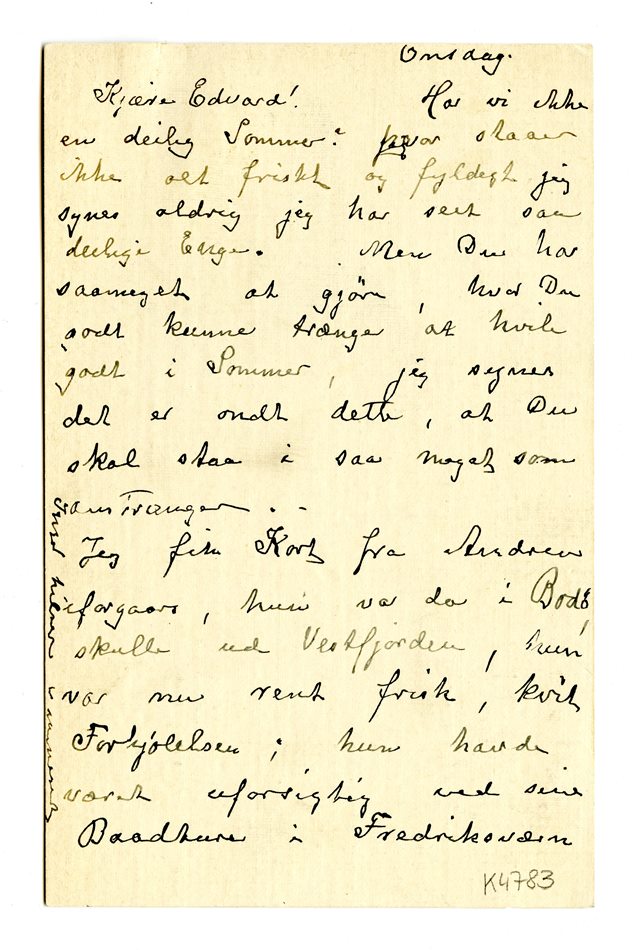 Onsdag.
Kjære Edvard! Har vi ikke
en deilig Sommer? hvor staaer
ikke alt friskt og fyldigt jeg
synes aldrig jeg har seet saa
deilige Enge. Men Du har
saameget at gjøre, hvor Du
godt kunne trænge at hvile
godt i Sommer, jeg synes
det er ondt dette, at Du
skal staa i saa meget som
anstrænger . -
Jeg fik Kort fra Andrea
iforgaars, hun var da i Bodø,
skulle ud Vestfjorden, hun
var nu rent frisk, kvit
Forkjølelsen; hun havde
været uforsigtig ved sine
Baadture i Fredriksværn
Inger hilser
K4783